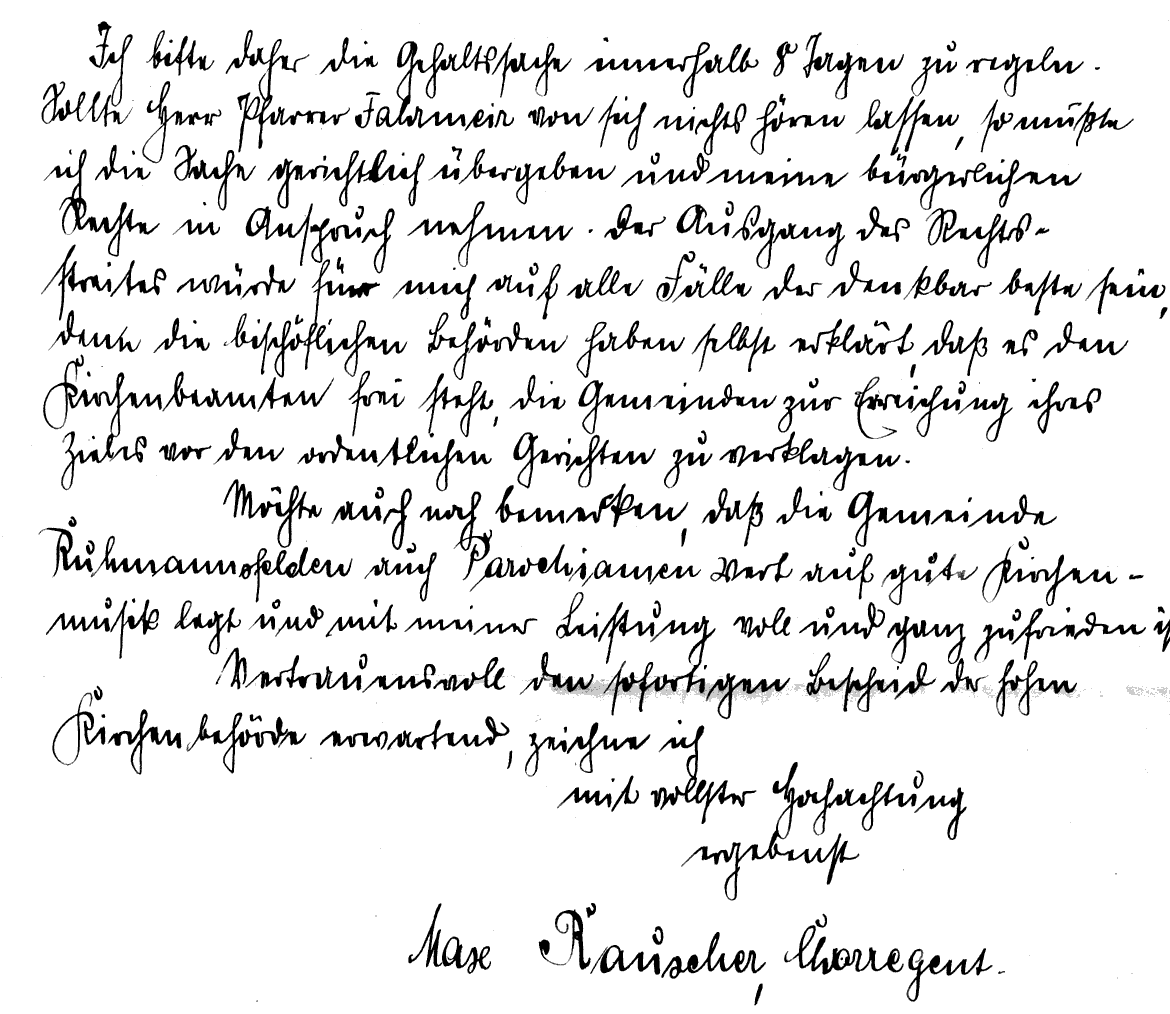 Ich bitte daher die Gehaltssache innerhalb 8 Tagen zu regeln.
Sollte Herr Pfarrer Fahrmeir von sich nichts hören lassen, so müßte
ich die Sache gerichtlich übergeben und meine bürgerlichen
Rechte in Anspruch nehmen. Der Ausgang des Rechts-
streites würde für mich auf alle Fälle der denkbar beste sein,
denn die bischöflichen Behörden haben selbst erklärt, daß es den
Kirchenbeamten frei steht, die Gemeinden zur Erreichung ihres
Zieles vor den ordentlichen Gerichten zu verklagen.
Möchte auch noch bemerken, daß die Gemeinde
Ruhmannsfelden auch Parochianen Wert auf gute Kirchen-
musik legt und mit meiner Leistung voll und ganz zufrieden is
Vertrauensvoll den sofortigen Bescheid der hohen
Kirchenbehörde erwartend, zeichne ich
mit vollster Hochachtung
ergebenst
Max Rauscher, Chorregent.